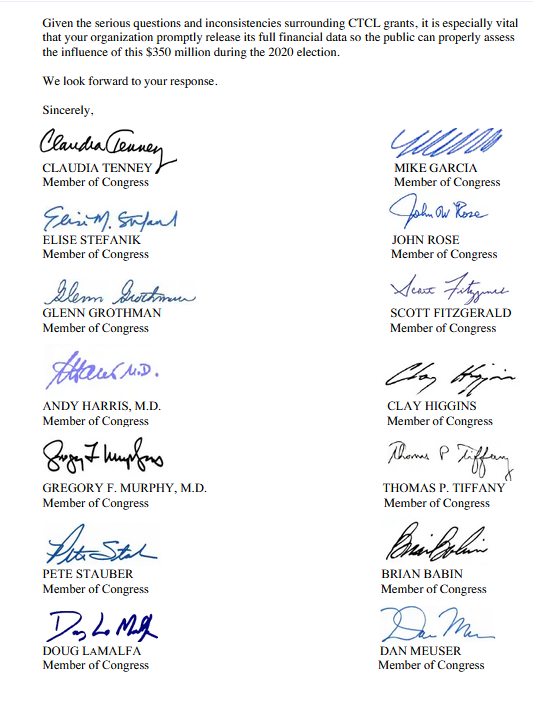 Given the serious questions and inconsistencies surrounding CTCL grants, it is especially vital
that your organization promptly release its full financial data so the public can properly assess
the influence of this $350 million during the 2020 election.
We look forward to your response.
Sincerely,
Claudia Tenney
CLAUDIA TENNEY
Member of Congress
MIKE GARCIA
Member of Congress
Elise M. Stefanik
ELISE STEFANIK
Member of Congress
John W Rose
JOHN ROSE
Member of Congress
Glenn Grothman
GLENN GROTHMAN
Member of Congress
Scott Fitzgerald
SCOTT FITZGERALD
Member of Congress
M.D.
ANDY HARRIS, M.D.
Member of Congress
Clay Higgins
CLAY HIGGINS
Member of Congress
Gregory F Murphy
GREGORY F. MURPHY, M.D.
Member of Congress
Thomas P Tiffany
THOMAS P. TIFFANY
Member of Congress
Pete Stauber
PETE STAUBER
Member of Congress
Brian Babin
BRIAN BABIN
Member of Congress
Doug LaMalfa
DOUG LAMALFA
Member of Congress
Dan Meuser
DAN MEUSER
Member of Congress